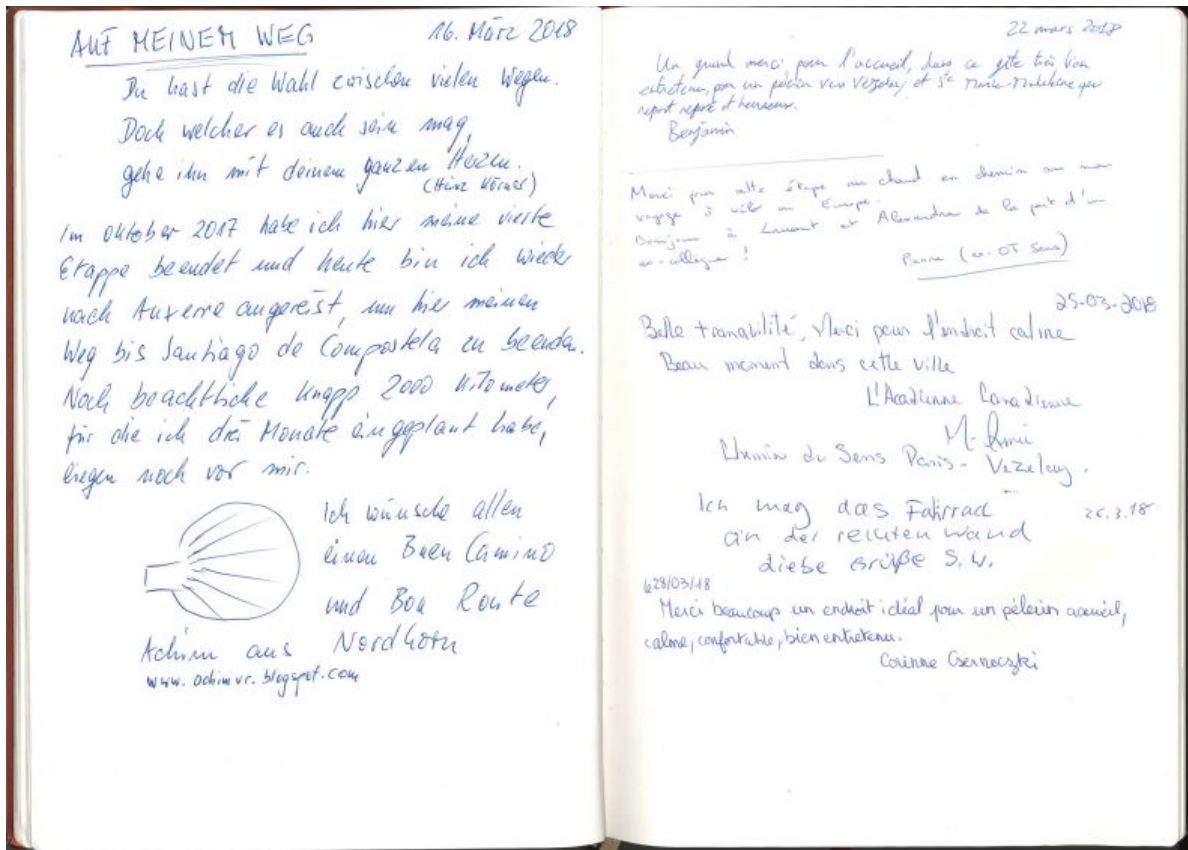 AUF MEINEM WEG 16. März 2018
Du hast die Wahl zwischen vielen Wegen.
Doch welcher es auch sein mag,
gehe ihn mit deinem ganzen Herzen.
(Heinz Körner)
Im Oktober 2017 habe ich hier meine vierte
Etappe beendet und heute bin ich wieder
nach Auxerre angereist, um hier meinen
Weg bis Santiago de Compostela zu beenden.
Noch beachtliche knapp 2000 Kilometer,
für die ich drei Monate eingeplant habe,
liegen noch vor mir.
Ich wünsche allen
einen Buen Camino
und Bon Route
Achim aus Nordhorn
www.achimvr.blogspot.com
22 mars 2018
Un grand merci pour l'accueil, dans ce gîte très bien
entretenu, pour un pèlerin vers Vézelay et Ste Marie-Madeleine qui
repart reposé et heureux.
Benjamin
Merci pour cette étape au chaud en chemin sur mon
voyage à vélo en Europe.
Bonjour à Laurent et Alexandra de la part d'un
ex-collègue !
(ex-OT Sens)
25-03-2018
Belle tranquilité, Merci pour l'endroit calme
Beau moment dans cette ville
L'Acadienne Canadienne
Chemin de Sens Paris - Vezelay.
Ich mag das Fahrrad 26.3.18
an der rechten Wand
Liebe Grüße S.W.
28/03/18
Merci beaucoup un endroit idéal pour un pélerin accueil,
calme, confortable, bien entretenu.
Corinne Csernoczki